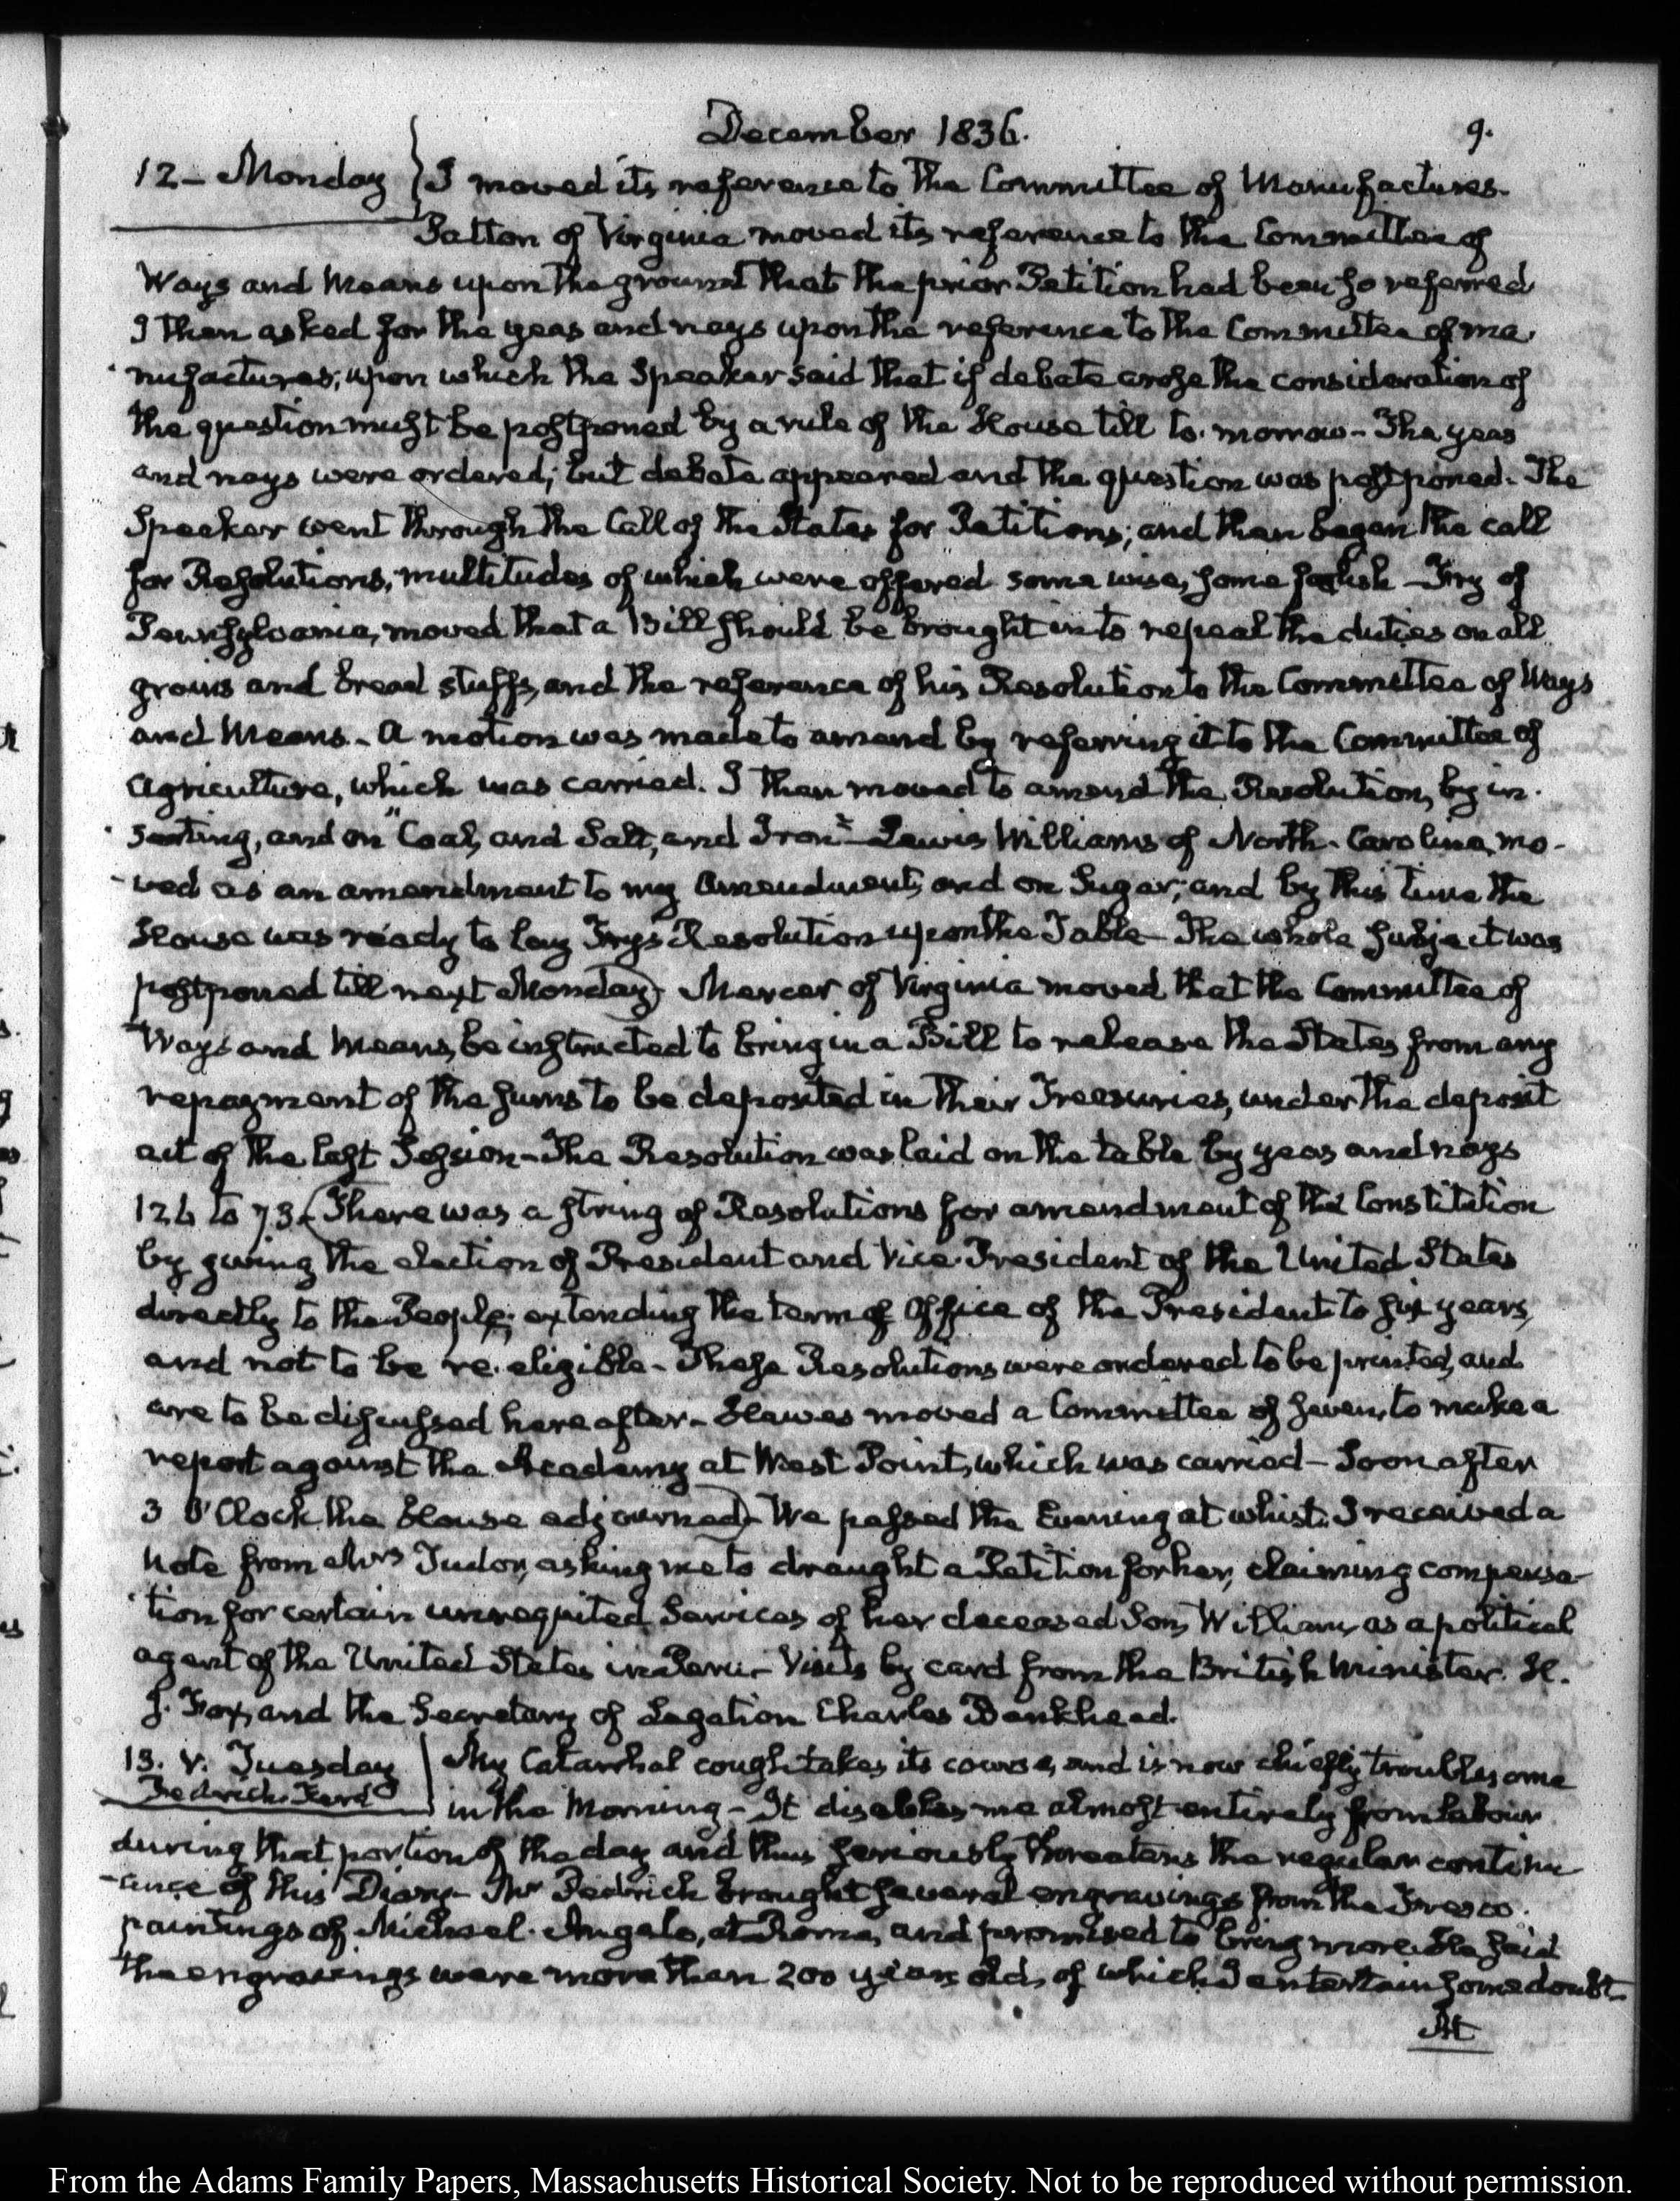 December 1836.
9.
12 – Monday
I moved its reference to the Committee of Manufactures.
Patton of Virginia moved its reference to the Committee of
Ways and Means upon the ground that the prior Petition had been so referred
I then asked for the yeas and nays upon the reference to the Committee of Ma-
nufactures; upon which the Speaker said that if debate arose the consideration of
the question must be postponed by a rule of the House till to-morrow – The yeas
and nays were ordered; but debate appeared and the question was postponed. The
Speaker went through the Call of the States for Petitions; and then began the call
for Resolutions, multitudes of which were offered some wise, some foolish – Fry of
Pennsylvania, moved that a Bill should be brought in to repeal the duties on all
grains and bread stuffs, and the reference of his Resolution to the Committee of Ways
and Means – A motion was made to amend by referring it to the Committee of
Agriculture, which was carried. I then moved to amend the Resolution, by in-
serting, and on "Coal, and Salt, and Iron" – Lewis Williams of North-Carolina, mo-
-ved as an amendment to my amendment, and on Sugar; and by this time the
House was ready to lay Fry's Resolution upon the Table – The whole subject was
postponed till next Monday) Mercer of Virginia moved that the Committee of
Ways and Means, be instructed to bring in a Bill to release the States from any
repayment of the sums to be deposited in their Treasuries, under the deposit
act of the last Session – The Resolution was laid on the table by yeas and nays
126 to 73. (There was a string of Resolutions for amendment of the Constitution
by giving the election of President and Vice-President of the United States
directly to the People; extending the term of Office of the President to six years,
and not to be re-eligible – These Resolutions were ordered to be printed, and
are to be discussed hereafter – Hawes moved a Committee of seven, to make a
report against the Academy at West Point, which was carried – Soon after
3 O'Clock the House adjourned) – We passed the Evening at whist. I received a
Note from Mrs Tudor, asking me to draught a Petition for her, claiming compensa-
-tion for certain unrequited Services of her deceased Son, William, as a political
agent of the United States in Peru – Visits by card from the British Minister. H.
S. Fox, and the Secretary of Legation Charles Bankhead.
13. V. Tuesday
Fedrick
My Catarrhal cough takes its course, and is now chiefly troublesome
in the Morning – It disables me almost entirely from labour
during that portion of the day and thus seriously threatens the regular continu
-ance of this Diary – Mr Fedrick brought several engravings from the Fresco-
paintings of Michael-Angelo, at Rome, and promised to bring more. He said
the engravings were more than 200 years old, of which I entertain some doubt
At
From the Adams Family Papers, Massachusetts Historical Society. Not to be reproduced without permission.